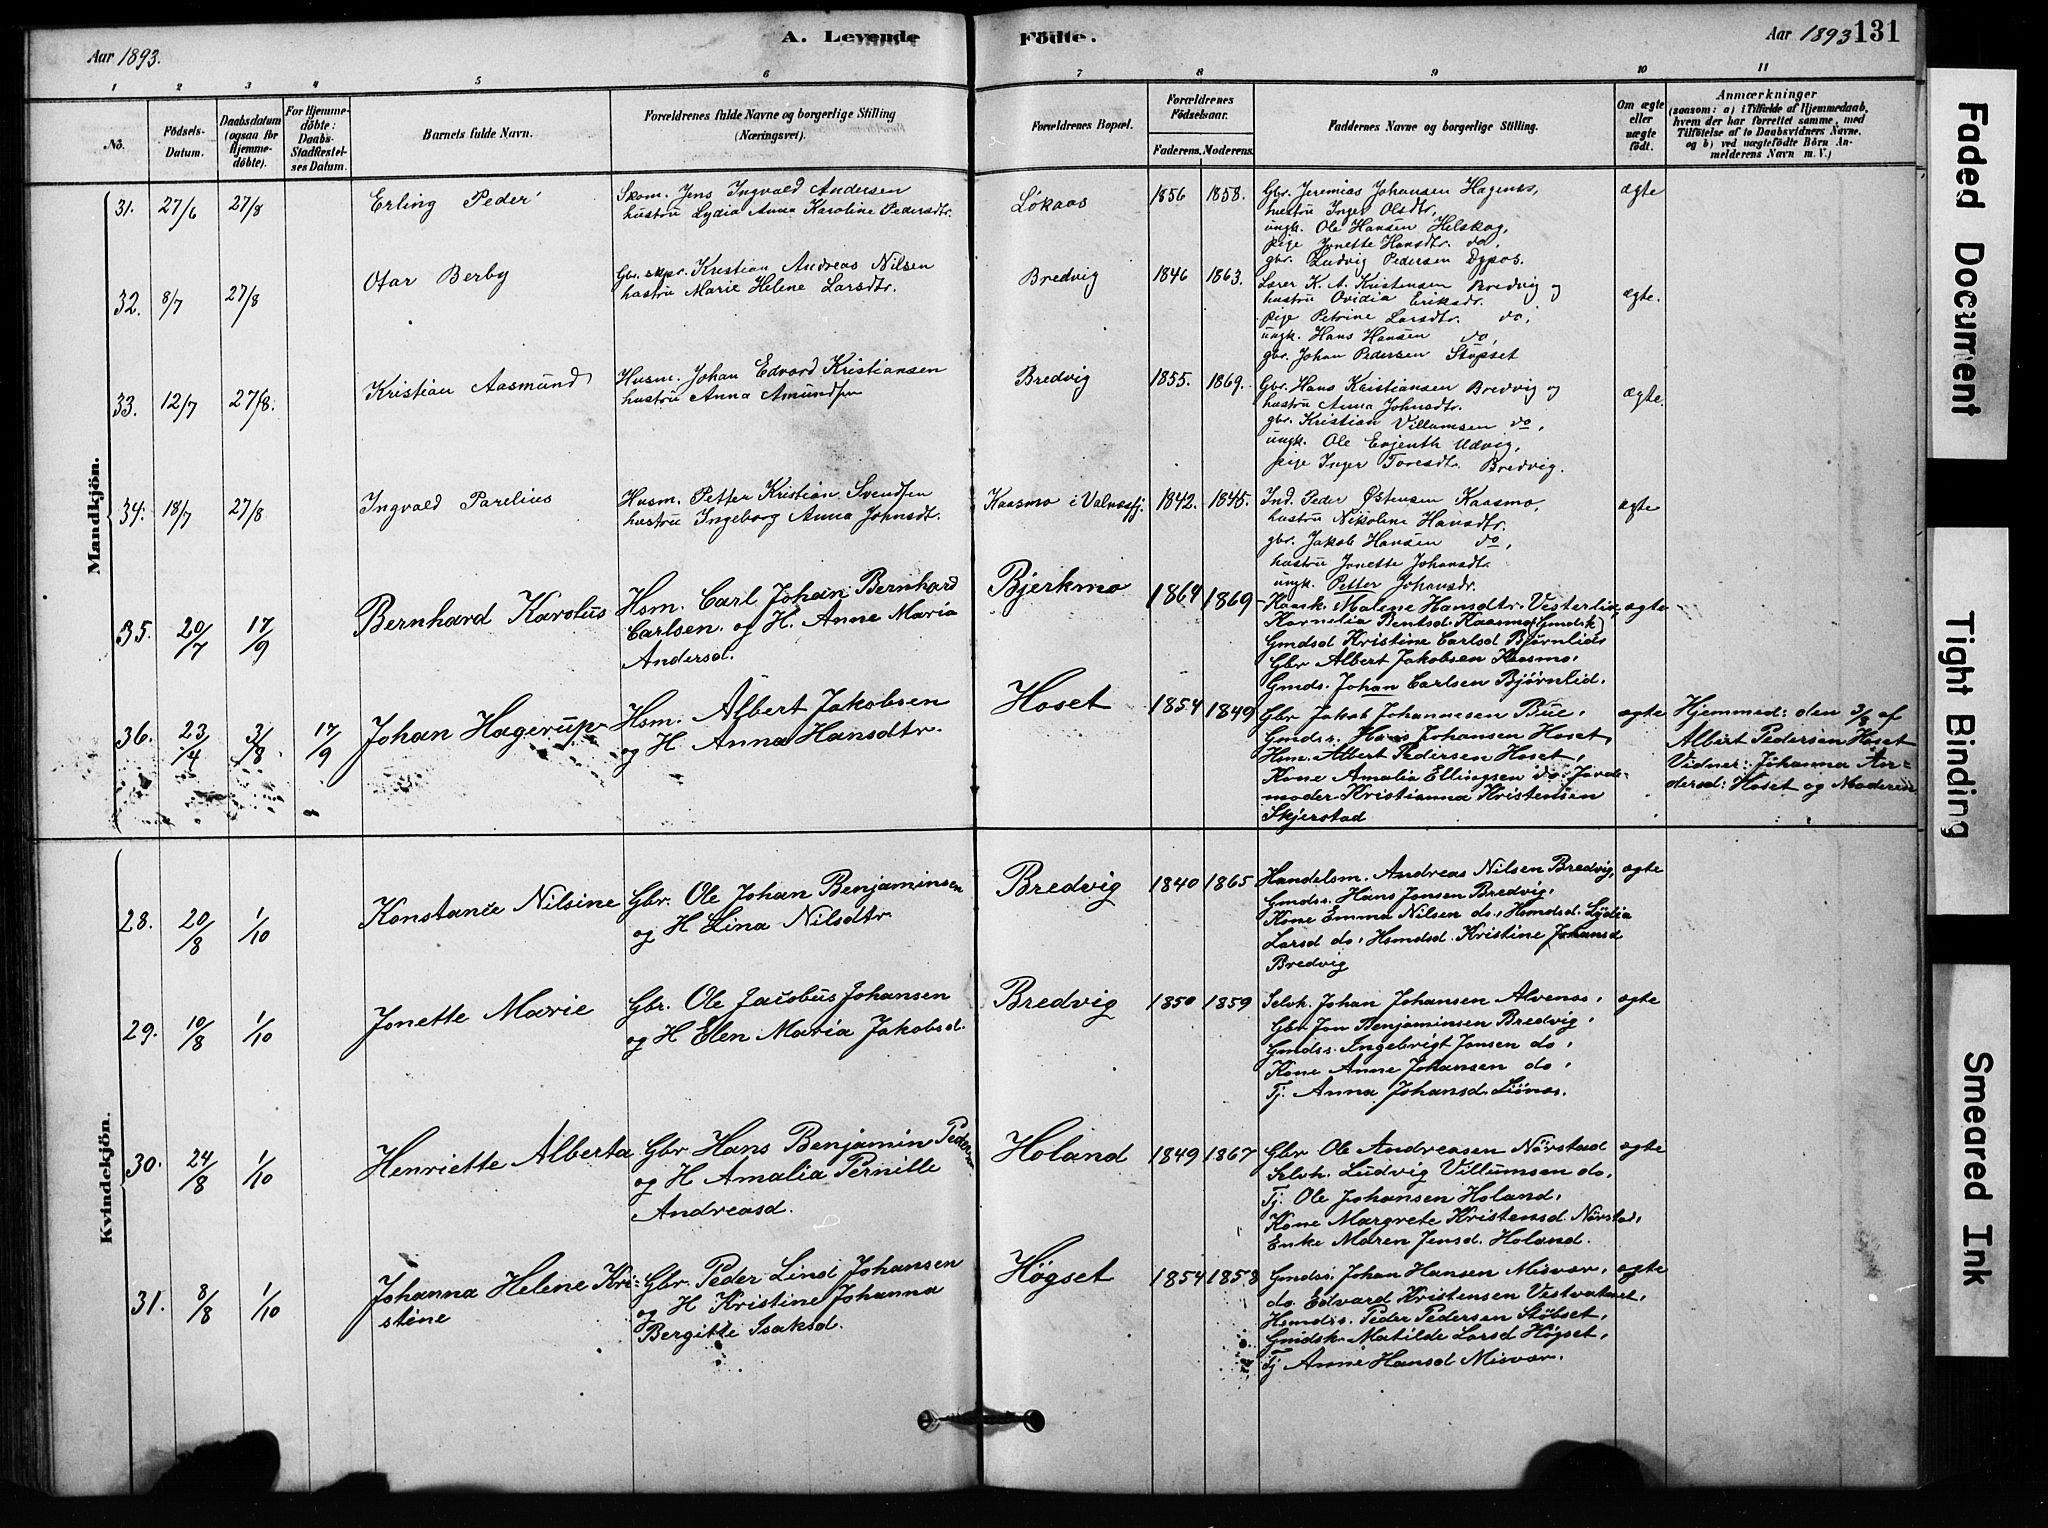 Aar 1893.
A. Levende Födte.
Aar 1893 131
1 2 3 4 5 6 7 8 9 10 11
No.
Födsels-Datum.
Daabsdatum (ogsaa for Hjemmedöbte).
For Hjemmedöbte: Daabs-Stadfestelses Datum.
Barnets fulde Navn.
Forældrenes fulde Navne og borgerlige Stilling (Næringsvei).
Forældrenes Bopæl.
Forældrenes Födselsaar.
Faderens. Moderens.
Faddernes Navne og borgerlige Stilling.
Om ægte eller uægte födt.
Anmærkninger
(saasom: a) i Tilfælde af Hjemmedaab, hvem der har forrettet samme, med Tilföielse af to Daabsvidners Navne. og b) ved uægtefödte Börn Anmelderens Navn m. V.)
Mandkjön.
31. 27/6 27/8 Erling Peder
Skom. Jens Ingvald Andersen
hustru Lydia Anna Karoline Pedersdtr.
Løkaas 1856 1858.
Gbr. Jeremias Johansen Hagenæs,
hustru Inger Olsdtr,
ungk. Ole Hansen Helskog,
pige Jonette Hansdtr. do,
gbr. Ludvig Pedersen Dypos.
ægte
32. 8/7 27/8 Otar Berby
Gbr. skpr. Kristian Andreas Nilsen
hustru Marie Helene Larsdtr.
Bredvig 1846 1863.
Lærer K. A. Kristensen Bredvig og
hustru Ovidia Eriksdr.
pige Petrine Larsdtr. do,
ungk. Hans Hansen do,
gbr. Johan Pedersen Støpset
ægte.
33. 12/7 27/8. Kristian Aasmund
Husm. Johan Edvard Kristiansen
hustru Anna Amundsen
Bredvig 1855. 1869.
Gbr. Hans Kristiansen Bredvig og
hustru Anna Johnsdtr.
gbr. Kristian Villumsen do,
ungk. Ole Evjenth Udvig,
pige Inger Toresdtr. Bredvig.
ægte.
34. 18/7 27/8 Ingvald Parelius
Husm. Petter Kristian Svendsen
hustru Ingeborg Anna Johnsdt.
Kaasmo i Valnesfj. 1842. 1845.
Ind. Peder Østensen Kaasmo,
hustru Nikoline Hansdtr.
gbr. Jakob Hansen do,
hustru Jonette Johansdtr.
ungk. Petter Johansdr.
ægte
35. 20/7 17/9 Bernhard Karolus
Hsm. Carl Johan Bernhard
Carlsen. og H. Anne Maria
Andersd.
Bjerkmo 1864 1869
Malene Hansdtr. Vesterli
Kornelia Bentsd. Kaasmo (Gmdsk)
Gmdsd Kristine Carlsd Bjørnlid
Gbr Albert Jakobsen Kaasmo.
Gmds. Johan Carlsen Bjørnlid.
ægte
36. 23/4 3/8 17/9 Johan Hagerup
Hsm. Albert Jakobsen
og H Anna Hansdtr.
Hoset 1854 1849
Gbr Jakob Johannesen Bue,
Gmdss. Hans Johansen Hoset,
Hsm. Albert Pedersen Hoset,
Kone Amalia Ellingsen do. Jorde-
moder Kristianna Kristensen
Skjerstad
ægte
Hjemmed: den 3/8 af
Albert Pedersen Hoset
Vidner: Johanna An-
dersd: Hoset og Moderen
Kvindekjön.
28. 20/8 1/10 Konstance Nilsine
Gbr. Ole Johan Benjaminsen
og H Lina Nilsdtr.
Bredvig 1840 1865
Handelsm. Andreas Nilsen Bredvig,
Gmdss. Hans Jonsen Bredvig.
Kone Emma Nilsen do. Hsmdsd. Lydia
Larsd do, Hsmdsd. Kristine Johansd
Bredvig
ægte
29. 10/8 1/10 Jonette Marie
Gbr. Ole Jacobus Johansen
og H Elen Maria Jakobsd.
Bredvig 1850 1859
Selvh. Johan Johansen Alvenes,
Gbr Jon Benjaminsen Bredvig,
Gmdss. Ingebrigt Jonsen do,
Kone Anne Johansen do,
Tj. Anna Johansd. Liönes.
ægte
30. 24/8 1/10 Henriette Alberta
Gbr Hans Benjamin Pedersen
og H Amalia Pernille
Andreasd.
Holand 1849 1867
Gbr Ole Andreasen Nörstad
Selvh. Ludvig Villumsen do,
Tj. Ole Johansen Holand,
Kone Margrete Kristensd. Nörstad,
Enke Maren Jensd. Holand.
ægte
31. 8/8 1/10 Johanna Helene Kri-
stine
Gbr. Peder Lind Johansen
og H Kristine Johanna
Bergitte Isaksd.
Högset 1854 1858
Gmdss. Johan Hansen Misvær,
do. Edvard Kristensen Vestvatnet,
Hsmdss. Peder Pedersen Stöbset,
Gmdsk. Matilde Larsd Högset,
Tj Anne Hansd Misvær.
ægte
Faded Document
Tight Binding
Smeared Ink